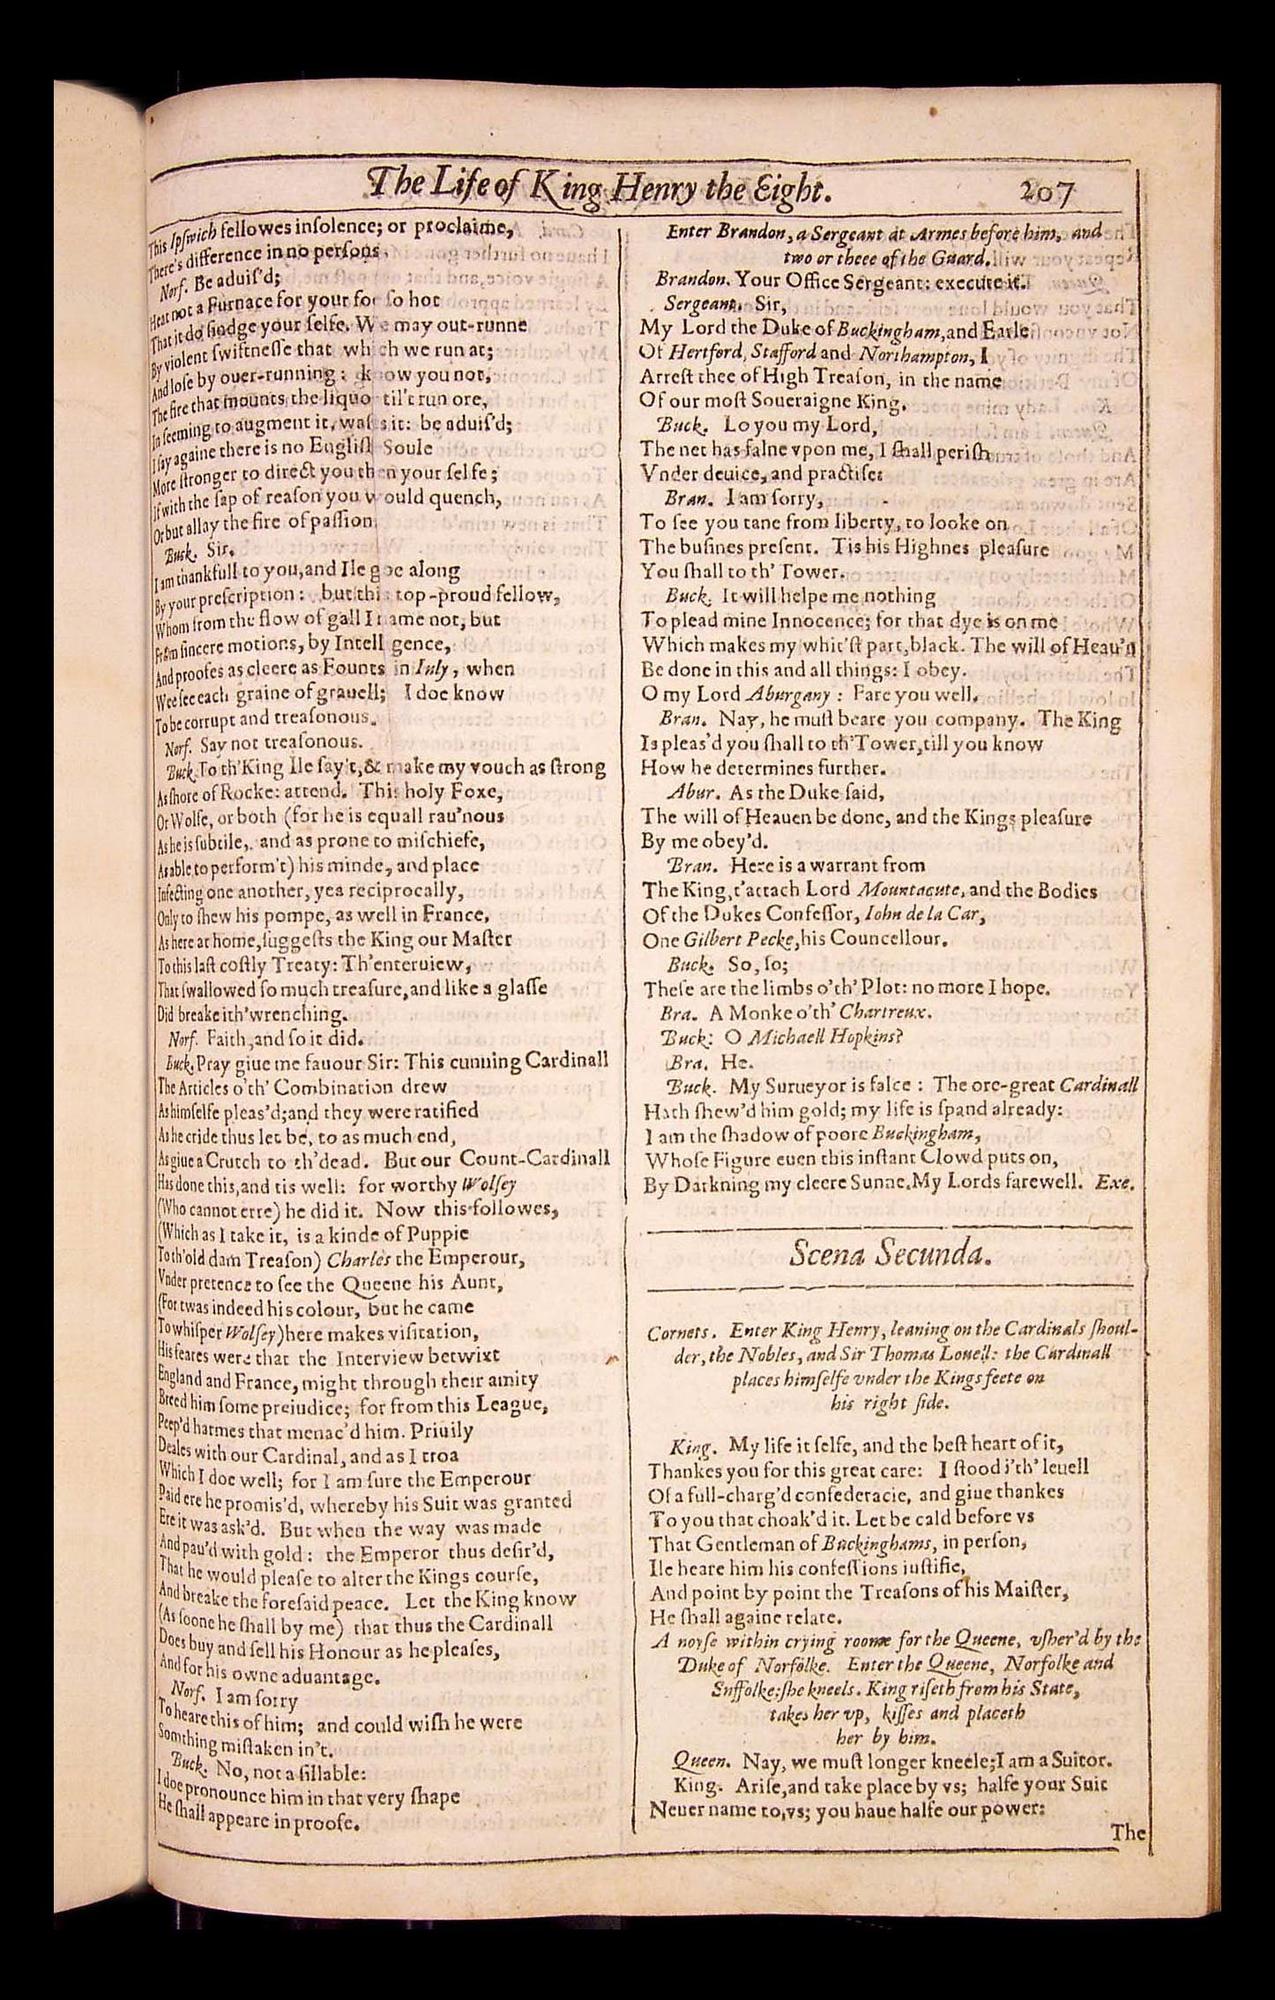 The Life of King Henry the Eight. 207
This Ipſwich fellowes inſolence; or proclaime,
There's difference in no perſons.
Norf. Be aduiſ'd;
Heat not a Furnace for your foe ſo hot
That it do ſindge your ſelfe. We may out-runne
By violent ſwiftneſſe that which we run at;
And loſe by ouer-running: know you not,
The fire that mounts the liquor til't run ore,
In ſeeming to augment it, waſts it: be aduiſ'd;
I ſay againe there is no Engliſh Soule
More ſtronger to direct you then your ſelfe;
If with the ſap of reaſon you would quench,
Or but allay the fire of paſſion.
Buck. Sir,
I am thankfull to you, and Ile goe along
By your preſcription: but this top-proud fellow,
Whom from the flow of gall I name not, but
From ſincere motions, by Intelligence,
And proofes as cleere as Founts in Iuly, when
Wee ſee each graine of grauell; I doe know
To be corrupt and treaſonous.
Norf. Say not treaſonous.
Buck. To th'King Ile ſay't, & make my vouch as ſtrong
As ſhore of Rocke: attend. This holy Foxe,
Or Wolfe, or both (for he is equall rau'nous
As he is ſubtile, and as prone to miſchiefe,
As able to perform't) his minde, and place
Infecting one another, yea reciprocally,
Only to ſhew his pompe, as well in France,
As here at home, ſuggeſts the King our Maſter
To this laſt coſtly Treaty: Th'enteruiew,
That ſwallowed ſo much treaſure, and like a glaſſe
Did breake ith'wrenching.
Norf. Faith, and ſo it did.
Buck. Pray giue me fauour Sir: This cunning Cardinall
The Articles o'th' Combination drew
As himſelfe pleas'd; and they were ratified
As he cride thus let be, to as much end,
As giue a Crutch to th'dead. But our Count-Cardinall
Has done this, and tis well: for worthy Wolſey
(Who cannot erre) he did it. Now this followes,
(Which as I take it, is a kinde of Puppie
To th'old dam Treaſon) Charles the Emperour,
Vnder pretence to ſee the Queene his Aunt,
(For twas indeed his colour, but he came
To whiſper Wolſey) here makes viſitation,
His feares were that the Interview betwixt
England and France, might through their amity
Breed him ſome preiudice; for from this League,
Peep'd harmes that menac'd him. Priuily
Deales with our Cardinal, and as I troa
Which I doe well; for I am ſure the Emperour
Paid ere he promis'd, whereby his Suit was granted
Ere it was ask'd. But when the way was made
And pau'd with gold: the Emperor thus deſir'd,
That he would pleaſe to alter the Kings courſe,
And breake the foreſaid peace. Let the King know
(As ſoone he ſhall by me) that thus the Cardinall
Does buy and ſell his Honour as he pleaſes,
And for his owne aduantage.
Norf. I am ſorry
To heare this of him; and could wiſh he were
Somthing miſtaken in't.
Buck. No, not a ſillable:
I doe pronounce him in that very ſhape
He ſhall appeare in proofe.
Enter Brandon, a Sergeant at Armes before him, and
two or three of the Guard.
Brandon. Your Office Sergeant: execute it.
Sergeant. Sir,
My Lord the Duke of Buckingham, and Earle
Of Hertford, Stafford and Northampton, I
Arreſt thee of High Treaſon, in the name
Of our moſt Soueraigne King.
Buck. Lo you my Lord,
The net has falne vpon me, I ſhall periſh
Vnder deuice, and practiſe.
Bran. I am ſorry,
To ſee you tane from liberty, to looke on
The buſines preſent. Tis his Highnes pleaſure
You ſhall to th' Tower.
Buck. It will helpe me nothing
To plead mine Innocence; for that dye is on me
Which makes my whit'ſt part, black. The will of Heau'n
Be done in this and all things: I obey.
O my Lord Aburgany: Fare you well.
Bran. Nay, he muſt beare you company. The King
Is pleas'd you ſhall to th'Tower, till you know
How he determines further.
Abur. As the Duke ſaid,
The will of Heauen be done, and the Kings pleaſure
By me obey'd.
Bran. Here is a warrant from
The King, t'attach Lord Mountacute, and the Bodies
Of the Dukes Confeſſor, Iohn de la Car,
One Gilbert Pecke, his Councellour.
Buck. So, ſo;
Theſe are the limbs o'th' Plot: no more I hope.
Bra. A Monke o'th' Chartreux.
Buck. O Michaell Hopkins?
Bra. He.
Buck. My Surueyor is falce: The ore-great Cardinall
Hath ſhew'd him gold; my life is ſpand already:
I am the ſhadow of poore Buckingham,
Whoſe Figure euen this inſtant Clowd puts on,
By Darkning my cleere Sunne. My Lords farewell. Exe.
Scena Secunda.
Cornets. Enter King Henry, leaning on the Cardinals ſhoul-
der, the Nobles, and Sir Thomas Louell: the Cardinall
places himſelfe vnder the Kings feete on
his right ſide.
King. My life it ſelfe, and the beſt heart of it,
Thankes you for this great care: I ſtood i'th' leuell
Of a full-charg'd confederacie, and giue thankes
To you that choak'd it. Let be cald before vs
That Gentleman of Buckinghams, in perſon,
Ile heare him his confeſſions iuſtifie,
And point by point the Treaſons of his Maiſter,
He ſhall againe relate.
A noyſe within crying roome for the Queene, vſher'd by the
Duke of Norfolke. Enter the Queene, Norfolke and
Suffolke: ſhe kneels. King riſeth from his State,
takes her vp, kiſſes and placeth
her by him.
Queen. Nay, we muſt longer kneele; I am a Suitor.
King. Ariſe, and take place by vs; halfe your Suit
Neuer name to vs; you haue halfe our power:
The